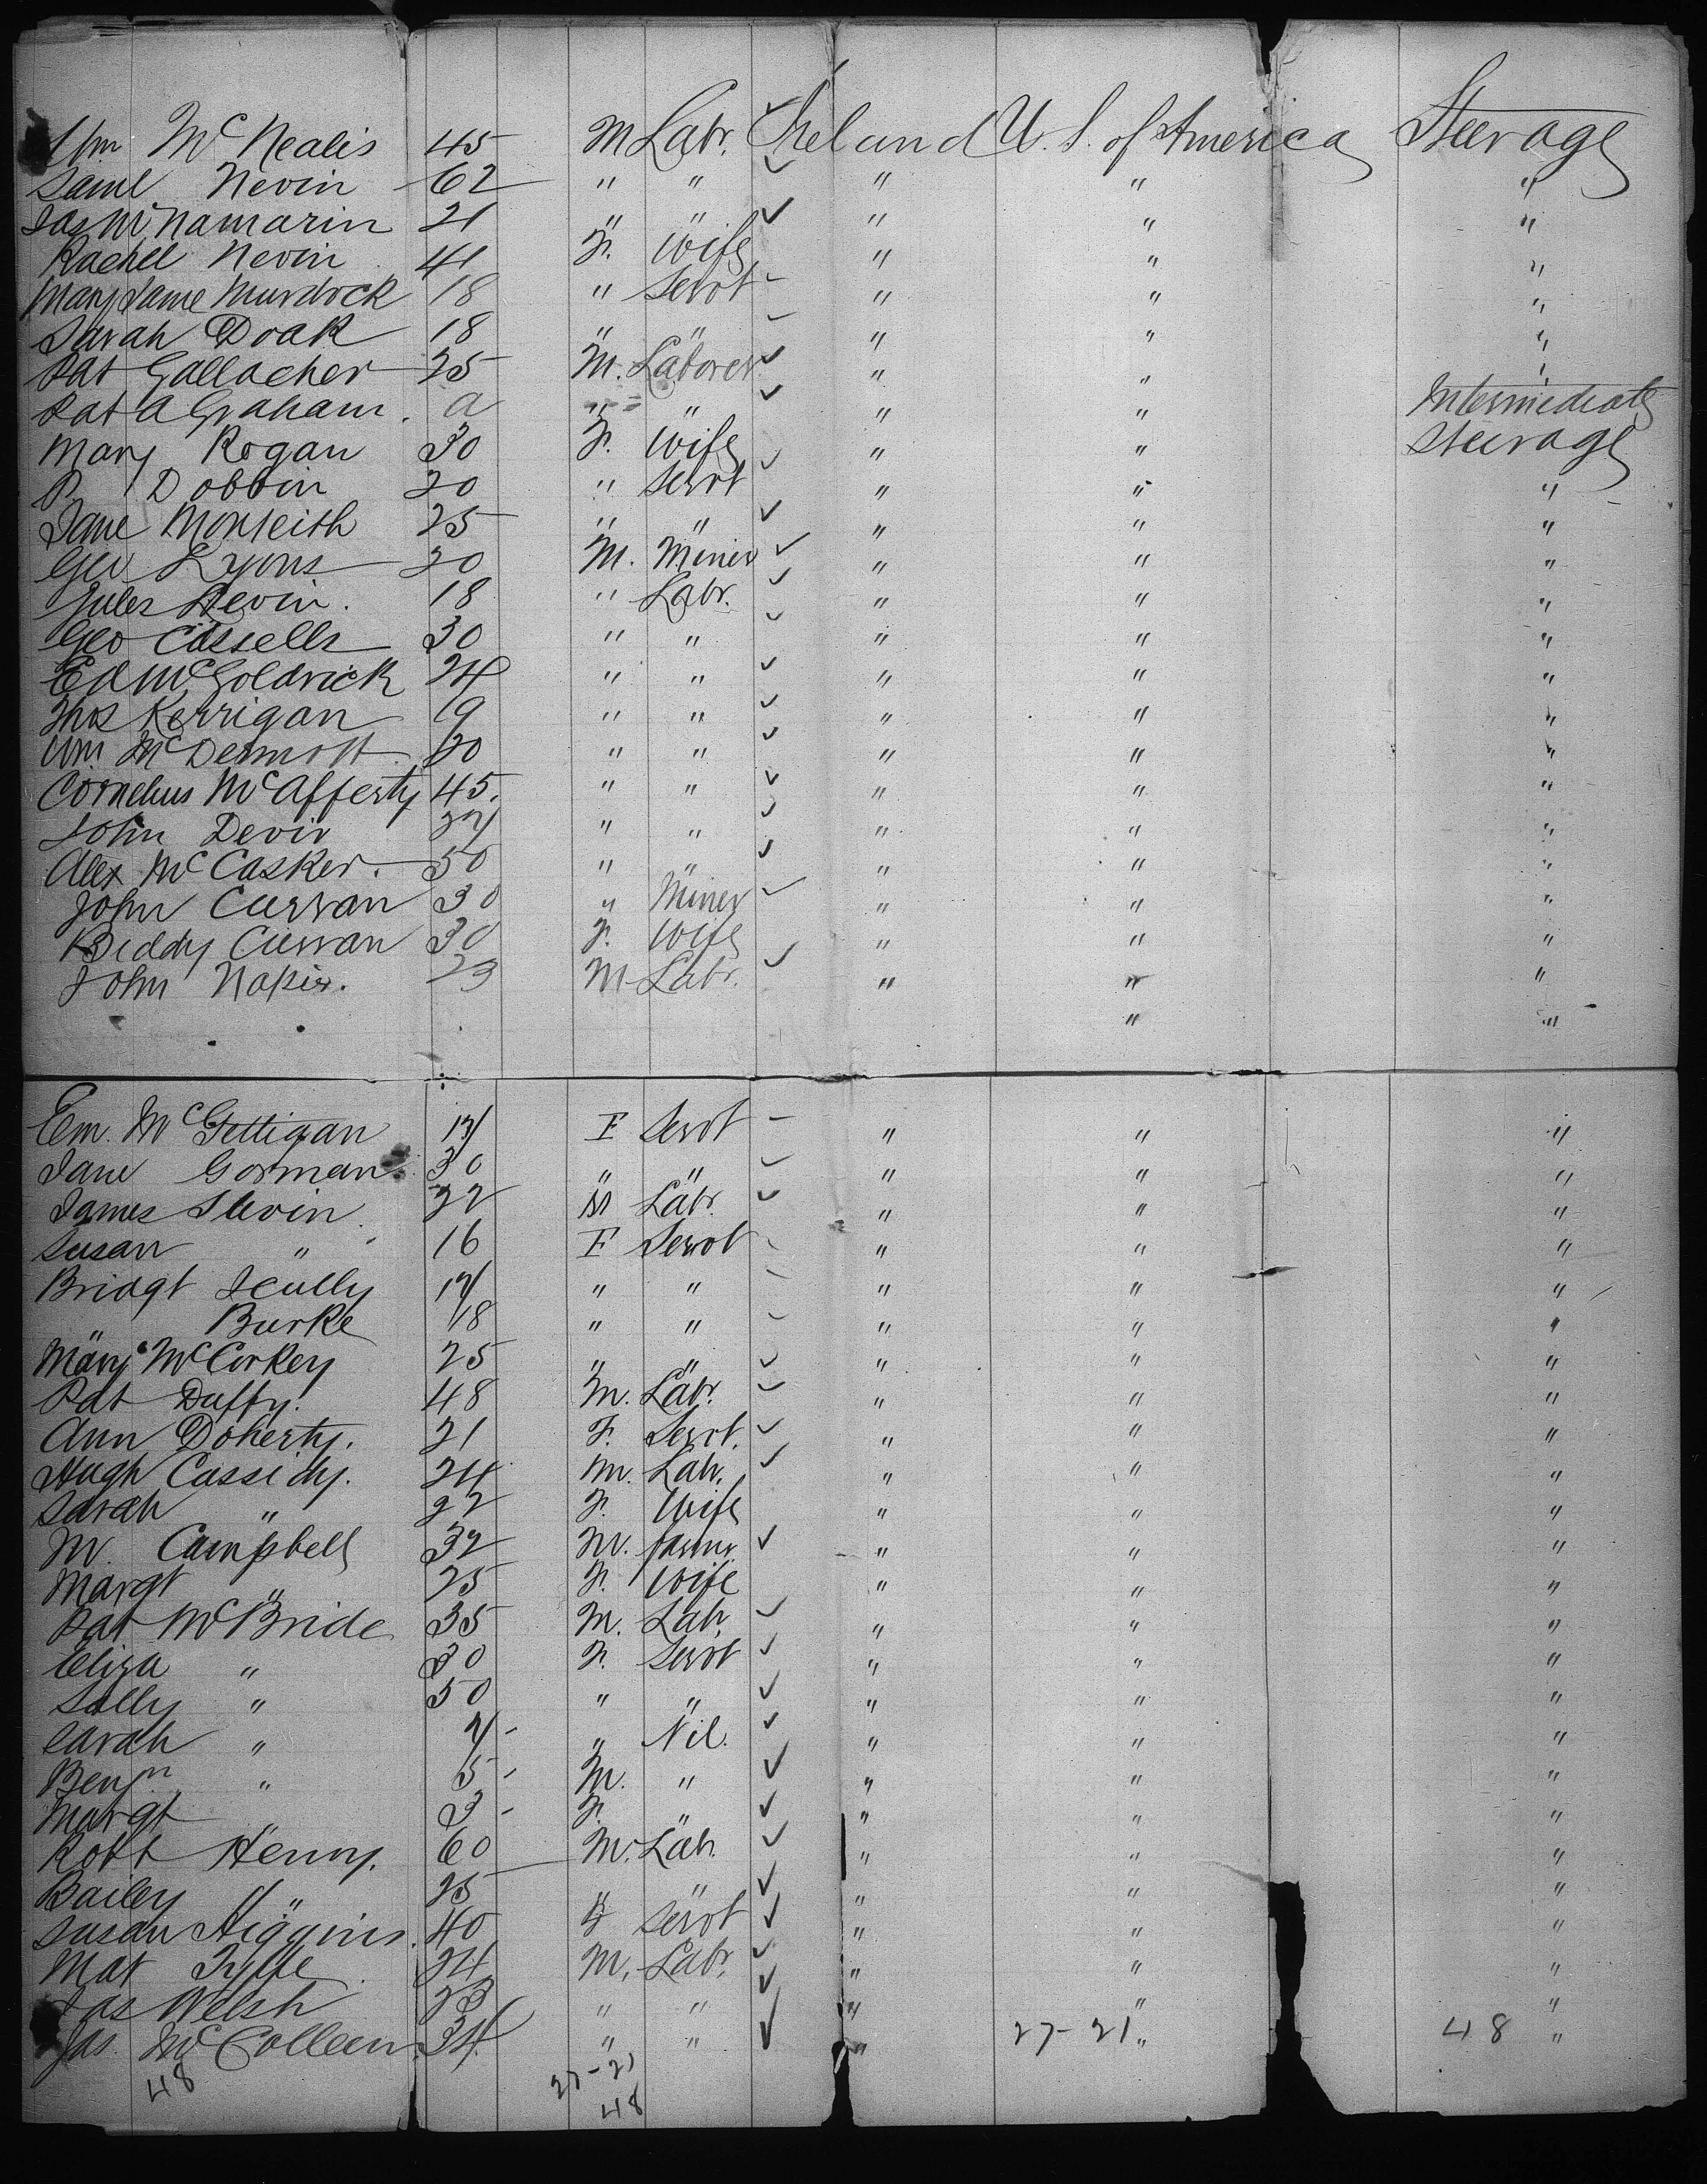 Wm McNealis 45 M Labr. Ireland U.S. of America Steerage
Saml Nevin 62 " " " " "
Jas McNamarin 21 " " " " "
Rachel Nevin 41 F. Wife " " "
Mary Jane Murdock 18 " Servt " " "
Sarah Doak 18 " " " " "
Pat Gallacher 25 M. Laborer " " "
Pat A Graham. a " " " " Intermediate
Mary Rogan 30 F. Wife " " Steerage
P Dobbin 20 " Servt " " "
Jane Monteith 25 " " " " "
Geo Lyons 20 M. Miner " " "
Jules Devin. 18 " Labr. " " "
Geo Cassells 30 " " " " "
Ed McGoldrick 24 " " " " "
Thos Kerrigan 19 " " " " "
Wm McDermott. 20 " " " " "
Cornelius McAfferty 45. " " " " "
John Devir 37 " " " " "
Alex McCasker. 50 " " " " "
John Curran 30 " Miner " " "
Biddy Curran 30 F. Wife " " "
John Napier. 23 M Labr. " " "
" "
Em. McGettigan 17 F Servt " " "
Jane Gorman 30 " " " " "
James Slevin. 22 M Labr. " " "
Susan " 16 F Servt " " "
Bridgt Scully 17 " " " " "
" Burke 18 " " " " "
Mary McCorkey 25 " " " " "
Pat Duffy. 48 M. Labr. " " "
Ann Doherty. 21 F. Servt. " " "
Hugh Cassidy. 24 M. Labr. " " "
Sarah " 22 F. Wife " " "
M. Campbell 32 M. farmr. " " "
Margt " 25 F. Wife " " "
Pat McBride 35 M. Labr. " " "
Eliza " 30 F. Servt " " "
Sally " 50 " " " " "
Sarah " 7 - " Nil. " " "
Benjn " 5 - M. " " " "
Margt " 3 - F. " " " "
Robt Henry. 60 M. Labr. " " "
Bailey " 25 " " " " "
Susan Higgins. 40 F Servt " " "
Mat 24 M. Labr. " " "
Jas Welsh 23 " " " " "
Jas. McColleen. 34. " " " 27-21 " 48 "
48 27-21
48